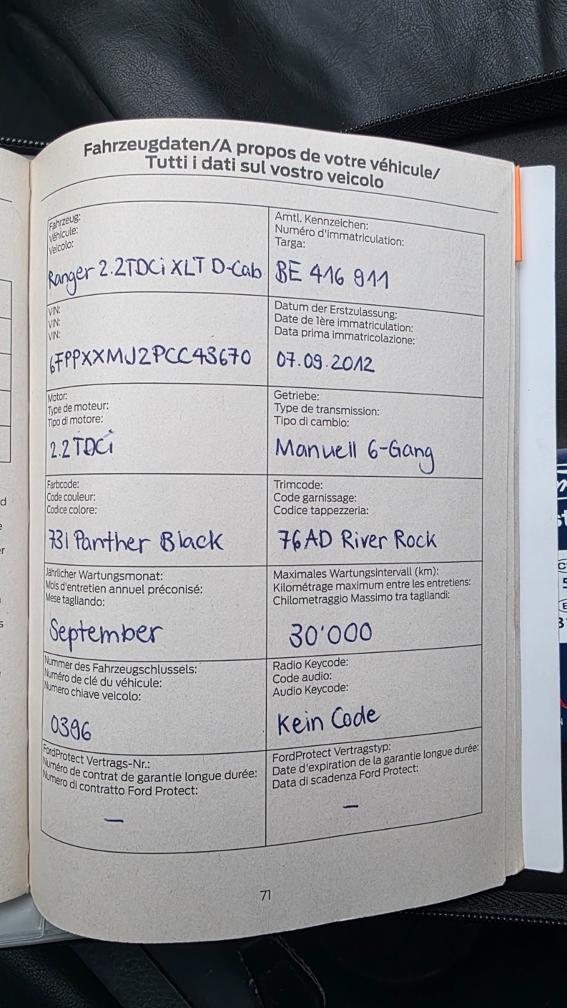 Fahrzeugdaten/A propos de votre véhicule/
Tutti i dati sul vostro veicolo
Fahrzeug:
Véhicule:
Veicolo:
Ranger 2.2TDCi XLT D-Cab
Amtl. Kennzeichen:
Numéro d'immatriculation:
Targa:
BE 416 911
VIN:
VIN:
VIN:
6FPPXXMJ2PCC43670
Datum der Erstzulassung:
Date de 1ère immatriculation:
Data prima immatricolazione:
07.09.2012
Motor:
Type de moteur:
Tipo di motore:
2.2 TDCi
Getriebe:
Type de transmission:
Tipo di cambio:
Manuell 6-Gang
Farbcode:
Code couleur:
Codice colore:
731 Panther Black
Trimcode:
Code garnissage:
Codice tappezzeria:
76AD River Rock
Jährlicher Wartungsmonat:
Mois d'entretien annuel préconisé:
Mese tagliando:
September
Maximales Wartungsintervall (km):
Kilométrage maximum entre les entretiens:
Chilometraggio Massimo tra tagliandi:
30'000
Nummer des Fahrzeugschlussels:
Numéro de clé du véhicule:
Numero chiave veicolo:
0396
Radio Keycode:
Code audio:
Audio Keycode:
Kein Code
FordProtect Vertrags-Nr.:
Numéro de contrat de garantie longue durée:
Numero di contratto Ford Protect:
—
FordProtect Vertragstyp:
Date d'expiration de la garantie longue durée:
Data di scadenza Ford Protect:
—
71